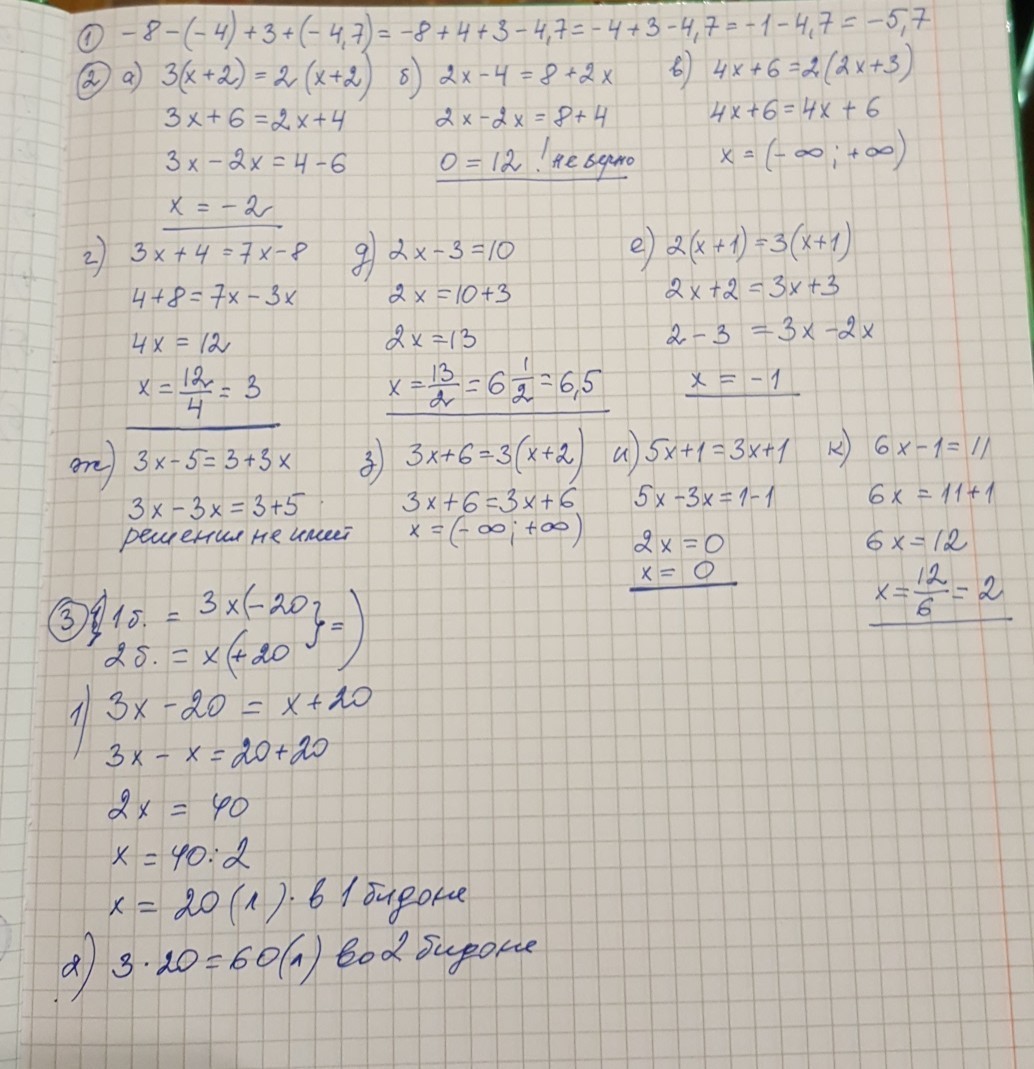 ① -8-(-4)+3+(-4,7)=-8+4+3-4,7=-4+3-4,7=-1-4,7=-5,7
② а) 3(x+2)=2(x+2) б) 2x-4=8+2x в) 4x+6=2(2x+3)
3x+6=2x+4 2x-2x=8+4 4x+6=4x+6
3x-2x=4-6 0=12 ! не верно x=(-∞;+∞)
x=-2
г) 3x+4=7x-8 д) 2x-3=10 е) 2(x+1)=3(x+1)
4+8=7x-3x 2x=10+3 2x+2=3x+3
4x=12 2x=13 2-3=3x-2x
x=12/4=3 x=13/2=6 1/2=6,5 x=-1
ж) 3x-5=3+3x з) 3x+6=3(x+2) и) 5x+1=3x+1 к) 6x-1=11
3x-3x=3+5 3x+6=3x+6 5x-3x=1-1 6x=11+1
решения не имеет x=(-∞;+∞) 2x=0 6x=12
x=0 x=12/6=2
③ 1б. = 3x(-20 } = )
2б. = x(+20
1) 3x-20=x+20
3x-x=20+20
2x=40
x=40:2
x=20(л). в 1 бидоне
2) 3·20=60(л) во 2 бидоне